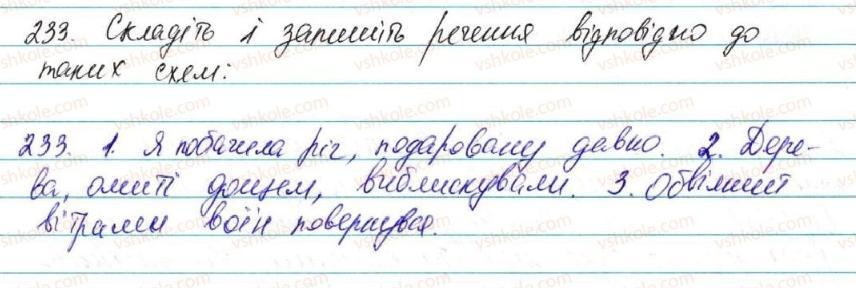 233. Складіть і запишіть речення відповідно до
таких схем:
233. 1. Я побачила річ, подаровану давно. 2. Дере-
ва, омиті дощем, виблискували. 3. Обвіяний
вітрами воїн повернувся.